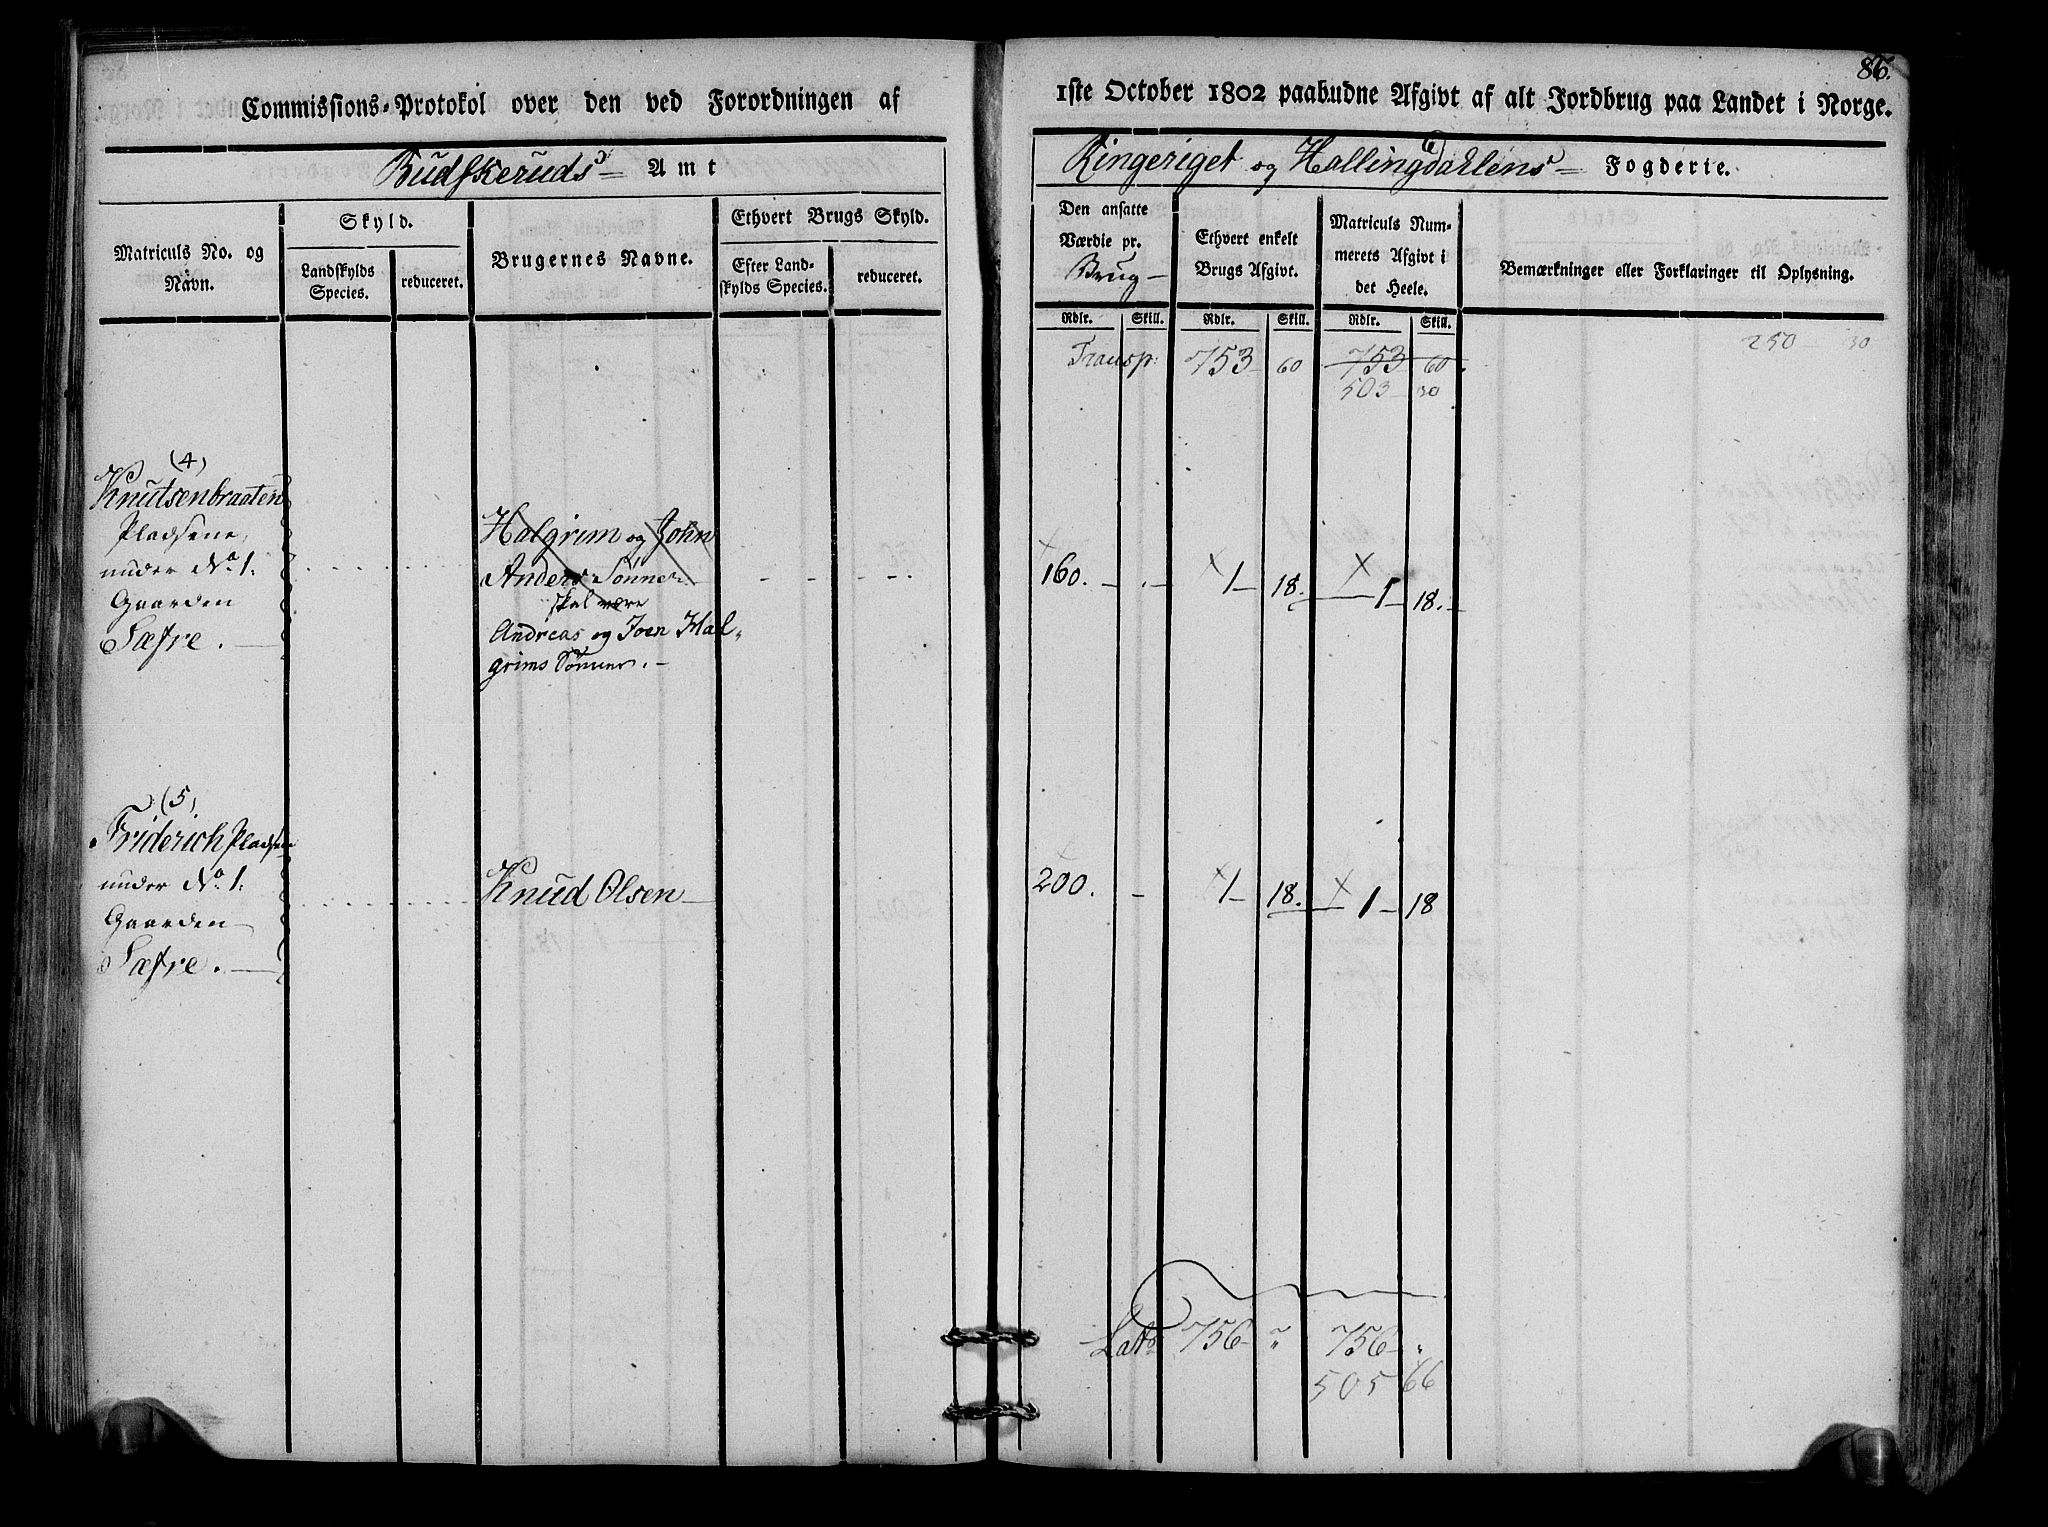 86.
Commissions-Protokol over den ved Forordningen af
1ste October 1802 paabudne Afgivt af alt Jordbrug paa Landet i Norge.
Budskeruds Amt
Ringeriget og Hallingdahlens Fogderie.
Matriculs No. og Navn.
Skyld.
Landskylds Species.
reduceret.
Brugernes Navne.
Ethvert Brugs Skyld.
Efter Landskylds Species.
reduceret.
Den ansatte
Værdie pr.
Brug
Ethvert enkelt
Brugs Afgivt.
Matriculs Num-
merets Afgivt i
det Heele.
Bemærkninger eller Forklaringer til Oplysning.
Rdlr. Skill. Rdlr. Skill. Rdlr. Skill.
Transp: 753 60 753 60. 250 30
503 30
(4)
Knutsenbraaten
Pladsene,
under No. 1.
Gaarden
Sæfre.
Halgrim og John
Anders Sønner
skal være
Andreas og Joen Hal-
grims Sønner.
160. 1 18. 1 18.
(5)
Friderich Pladsene
under No. 1.
Gaarden
Sæfre.
Knud Olsen
200. 1 18. 1 18
Lats 756 " 756 "
505 66